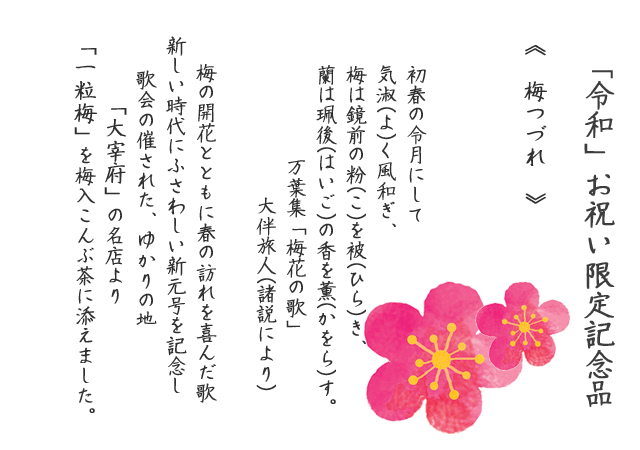 「令和」お祝い限定記念品
《 梅つづれ 》
初春の令月にして
気淑(よ)く風和ぎ、
梅は鏡前の粉(こ)を被(ひら)き、
蘭は珮後(はいご)の香を薫(かをら)す。
万葉集「梅花の歌」
大伴旅人(諸説により)
梅の開花とともに春の訪れを喜んだ歌
新しい時代にふさわしい新元号を記念し
歌会の催された、ゆかりの地
「大宰府」の名店より
「一粒梅」を梅入こんぶ茶に添えました。